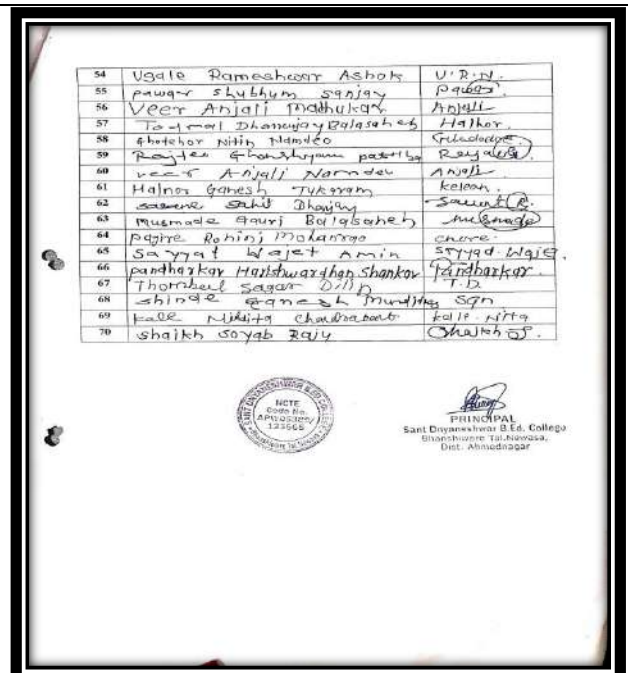 54 Ugale Rameshwar Ashok U.R.N.
55 pawar shubhum sanjay pawar
56 Veer Anjali Madhukar Anjali
57 Dhananjay Balasaheb Halhor.
58 Ghotehor Nitin Namdeo
59 Ghanshyam
60 veer Anjali Namdev Anjali
61 Halnor Ganesh Tukaram kelean.
62 Sahil Dhanjay Sawant R.
63 Musmade Gauri Balasaheb musmade
64 pajire Rohini Mohanrao chore.
65 Sayyat Wajet Amin Sayyad. Wajet.
66 pandharkar Harishwardhan Shankar Pandharkar.
67 Sagar Dilip T.D.
68 shinde Ganesh Sgn
69 kale Nikita
70 shaikh soyab Raju Shaikh S.
SANT DNYANESHWAR B.ED. COLLEGE
NCTE
Code No.
123565
PRINCIPAL
Sant Dnyaneshwar B.Ed. College
Bhanshiwore Tal.Newasa,
Dist. Ahmednagar